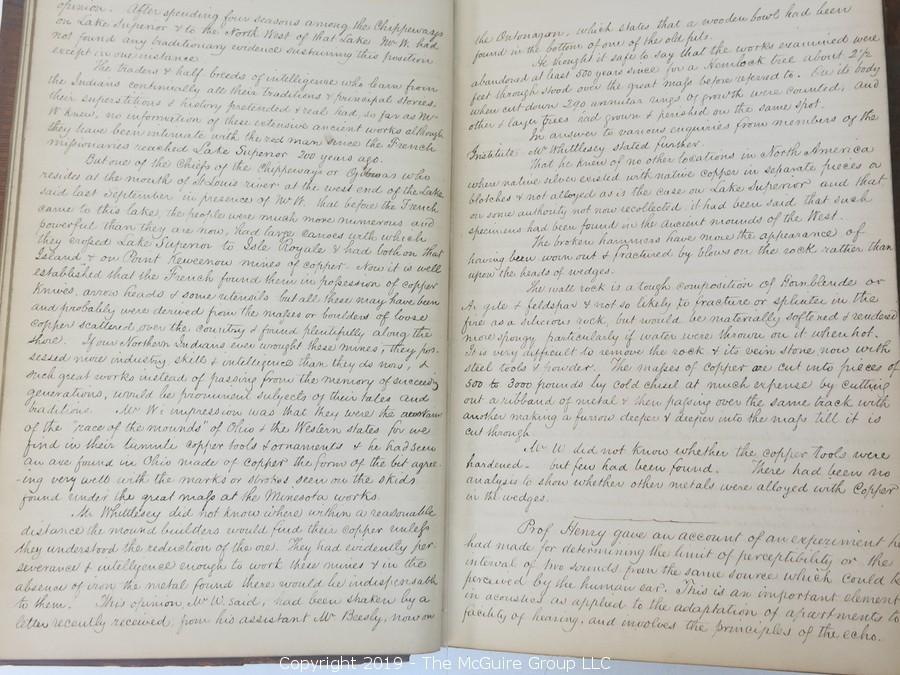 opinion. After spending four seasons among the Chippeways
on Lake Superior & to the North West of that Lake, Mr. W. had
not found any traditionary evidence sustaining this position
except in one instance.
The traders & half breeds of intelligence who learn from
the Indians continually all their traditions & principal stories,
their superstitions & history pretended & real, had, so far as Mr
W knew, no information of these extensive ancient works although
they have been intimate with the red man since the French
missionaries reached Lake Superior 200 years ago.
But one of the Chiefs of the Chippeways or Ojibwas who
resides at the mouth of St. Louis river at the west end of the Lake
said last September in presence of Mr W. that before the French
came to this lake, the people were much more numerous and
powerful than they are now, had large canoes with which
they crossed Lake Superior to Isle Royale & had both on that
Island & on Point Kewcenow mines of copper. Now it is well
established that the French found them in possession of copper
knives, arrow heads & some utensils but all these may have been
and probably were derived from the masses or boulders of loose
copper scattered over the country & found plentifully along the
shore. If our Northern Indians ever wrought these mines, they pos-
sessed more industry, skill & intelligence than they do now, &
such great works instead of passing from the memory of succeeding
generations, would be prominent subjects of their tales and
traditions. Mr W's impression was that they were the
of the "race of the mounds" of Ohio & the Western states for we
find in their tumuli copper tools & ornaments & he had seen
an axe found in Ohio made of copper the form of the bit agree-
-ing very well with the marks or strokes seen on the skids
found under the great mass at the Minesota works.
Mr Whittlesey did not know where within a reasonable
distance the mound builders would find their copper unless
they understood the reduction of the ore. They had evidently per-
severance & intelligence enough to work these mines & in the
absence of iron the metal found there would be indispensable
to them. This opinion, Mr W. said, had been shaken by a
letter recently received from his assistant Mr Beesly, now on
the Ontonagon, which states that a wooden bowl had been
found in the bottom of one of the old pits.
He thought it safe to say that the works examined were
abandoned at least 500 years since for a Hemlock tree about 2 1/2
feet through stood over the great mass before referred to. On its body
when cut down 290 annular rings of growth were counted, and
other & larger trees had grown & perished on the same spot.
In answer to various enquiries from members of the
Institute Mr Whittlesey stated further.
That he knew of no other locations in North America
where native silver existed with native copper in separate pieces or
blotches & not alloyed as is the case on Lake Superior and that,
on some authority not now recollected it had been said that such
specimens had been found in the ancient mounds of the West.
The broken hammers have more the appearance of
having been worn out & fractured by blows on the rock rather than
upon the heads of wedges.
The wall rock is a tough composition of Hornblende or
Augite & feldspar & not so likely to fracture or splinter in the
fire as a silicious rock, but would be materially softened & rendered
more spongy particularly if water were thrown on it when hot.
It is very difficult to remove the rock & its vein stone now with
steel tools & powder. The masses of copper are cut into pieces of
500 to 3000 pounds by cold chisel at much expense by cutting
out a ribband of metal & then passing over the same track with
another making a furrow deeper & deeper into the mass till it is
cut through.
Mr W. did not know whether the copper tools were
hardened - but few had been found. There had been no
analysis to show whether other metals were alloyed with Copper
in the wedges.
Prof. Henry gave an account of an experiment he
had made for determining the limit of perceptibility or the
interval of two sounds from the same source which could be
perceived by the human ear. This is an important element
in acoustics as applied to the adaptation of apartments to
facility of hearing, and involves the principles of the echo.
Copyright 2019 - The McGuire Group LLC